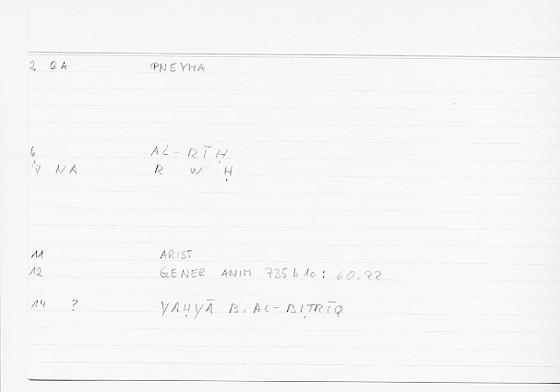 2 QA PNEYMA
6 AL-RĪḤ
7 NA R W Ḥ
11 ARIST
12 GENER ANIM 735 b 10: 60.22
14 ? YAḤYĀ B. AL-BIṬRĪQ